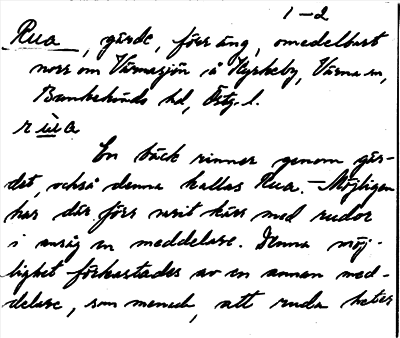 1–2
Rua, gärde, förr äng, omedelbart
norr om Värnasjön i Kyrkeby, Värna sn,
Bankekinds hd, Östg. l.
rùa
En bäck rinner genom gär-
det, också denna kallas Rua. – Möjligen
har där förr varit kärr med rudor
i ansåg en meddelare. Denna möj-
lighet förkastades av en annan med-
delare, som menade, att ruda heter